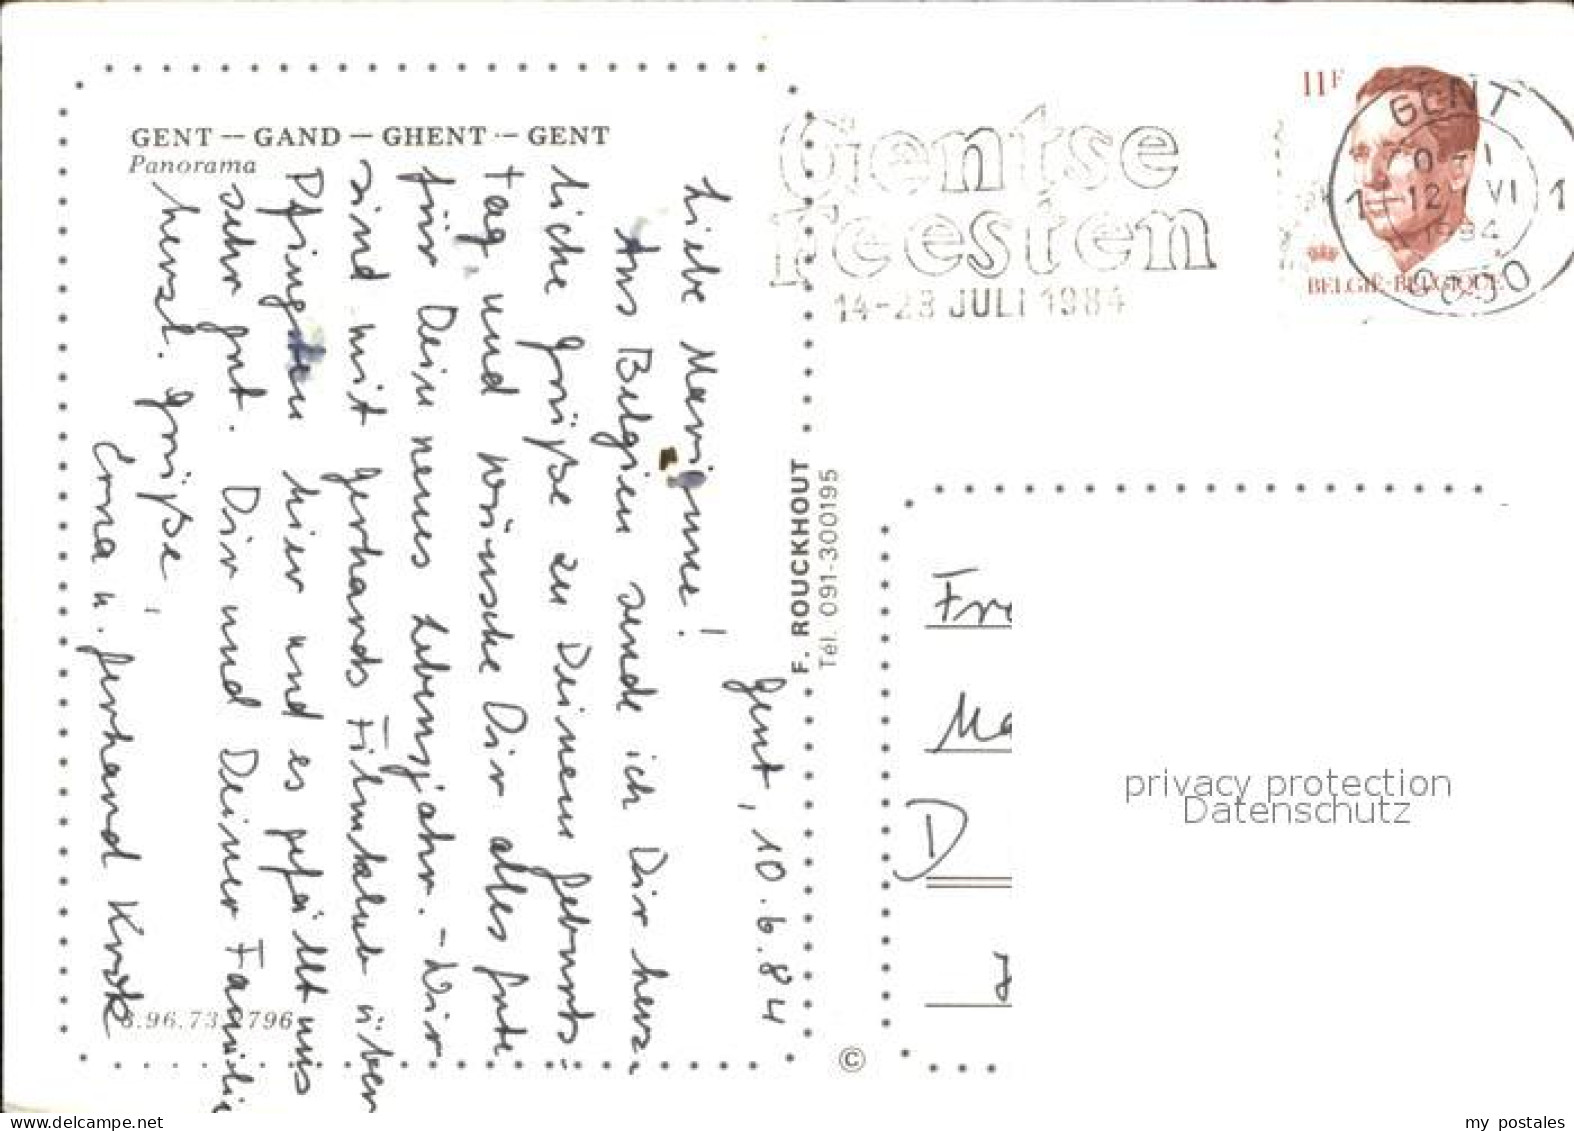 GENT -- GAND -- GHENT -- GENT
Panorama
Gent, 10.6.84
Liebe Marianne!
Aus Belgien sende ich Dir herz-
liche Grüße zu Deinem Geburts-
tag und wünsche Dir alles Gute
für Dein neues Lebensjahr. – Wir
sind mit Gerhards Filmklub über
Pfingsten hier und es gefällt uns
sehr gut. Dir und Deiner Familie
herzl. Grüße,
Erna u. Gerhard
.96.73. 796
F. ROUCKHOUT
Tél. 091-300195
©
Gentse
Feesten
14-23 JULI 1984
11F
BELGIË-BELGIQUE
GENT
1 12 VI 1
1984
Fr
Ma
D
privacy protection
Datenschutz
www.delcampe.net
my postales